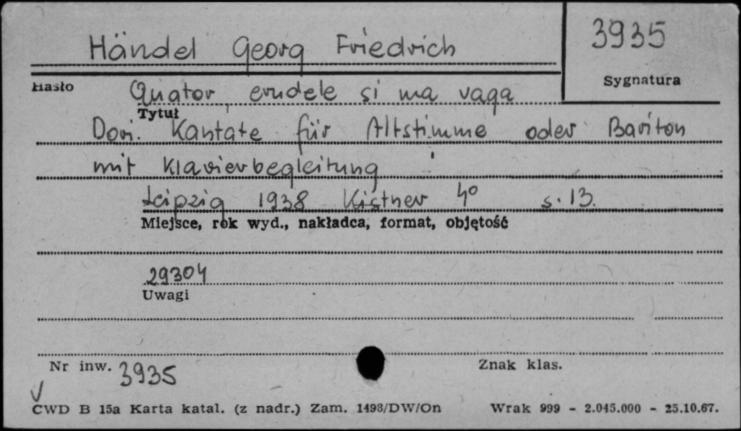 Händel Georg Friedrich
3935
Hasło
Sygnatura
Quator crudele si ma vaga
Tytuł
Dori. Kantate für Altstimme oder Bariton
mit Klavierbegleitung
Leipzig 1938 Kistner 4° s. 13.
Miejsce, rok wyd., nakładca, format, objętość
29304
Uwagi
Nr inw. 3935
Znak klas.
CWD B 15a Karta katal. (z nadr.) Zam. 1493/DW/On Wrak 999 - 2.045.000 - 25.10.67.